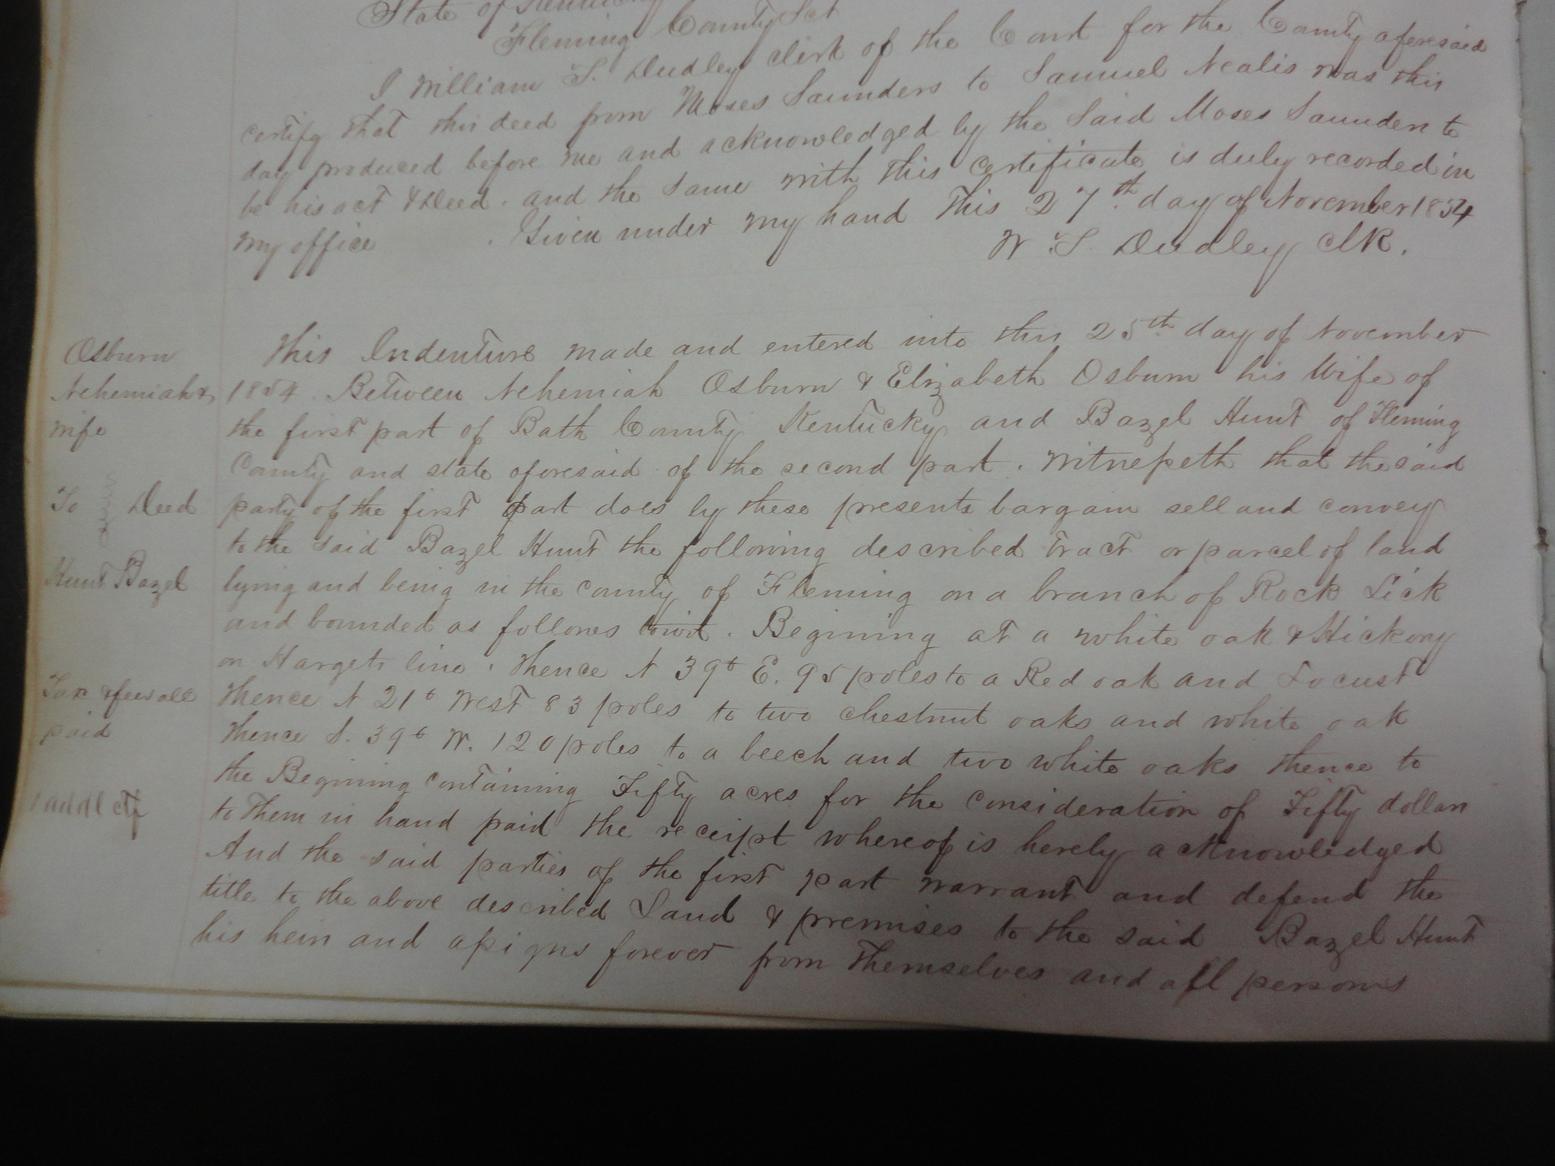 State of Kentucky
Fleming County Sct
I William S. Dudley clerk of the Court for the County aforesaid
certify that this deed from Moses Saunders to Samuel Nealis was this
day produced before me and acknowledged by the Said Moses Saunders to
be his act & Deed. and the Same with this Certificate is duly recorded in
my office. Given under my hand this 27th day of November 1854
W S. Dudley Clk.
Osburn
Nehemiah &
wife
To Deed
Hunt Bazel
Tax & fees all
paid
This Indenture made and entered into this 25th day of November
1854. Between Nehemiah Osburn & Elizabeth Osburn his Wife of
the first part of Bath County Kentucky and Bazel Hunt of Fleming
County and state aforesaid of the second part. Witnesseth that the said
party of the first part does by these presents bargain sell and convey
to the Said Bazel Hunt the following described tract or parcel of land
lying and being in the county of Fleming on a branch of Rock Lick
and bounded as follows. Begining at a white oak & Hickory
on Hargets line. thence N 39° E. 95 poles to a Red oak and Locust
thence N 21° West 83 poles to two chestnut oaks and white oak
thence S. 39° W. 120 poles to a beech and two white oaks thence to
the Begining containing Fifty acres for the consideration of Fifty dollars
to them in hand paid the receipt whereof is hereby acknowledged
And the said parties of the first part warrant and defend the
title to the above described Land & premises to the said Bazel Hunt
his heirs and assigns forever from themselves and all persons